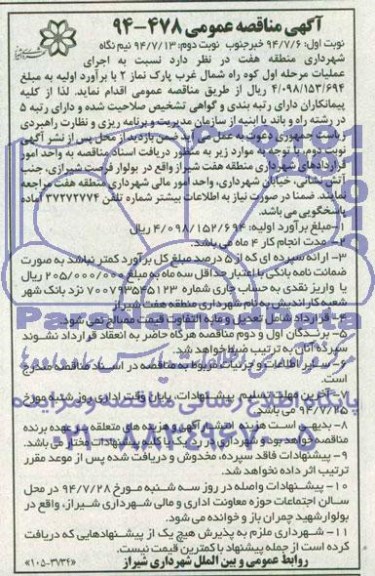 آگهی مناقصه عمومی ۴۷۸-۹۴
نوبت اول: ۹۴/۷/۶ خبرجنوب نوبت دوم: ۹۴/۷/۱۳ نیم نگاه
شهرداری منطقه هفت در نظر دارد نسبت به اجرای
عملیات مرحله اول کوه راه شمال غرب پارک نماز ۲ با برآورد اولیه به مبلغ
۴/۰۹۸/۱۵۳/۶۹۴ ریال از طریق مناقصه عمومی اقدام نماید. لذا از کلیه
پیمانکاران دارای رتبه بندی و گواهی تشخیص صلاحیت شده و دارای رتبه ۵
در رشته راه و باند یا ابنیه از سازمان مدیریت و برنامه ریزی و نظارت راهبردی
ریاست جمهوری دعوت به عمل می آید ضمن بازدید از محل پس از نشر آگهی
نوبت دوم، با توجه به موارد زیر به منظور دریافت اسناد مناقصه به واحد امور
قراردادهای شهرداری منطقه هفت شیراز واقع در بولوار فرصت شیرازی، جنب
آتش نشانی، خیابان شهرداری، واحد امور مالی شهرداری منطقه هفت مراجعه
نمایند. ضمنا در صورت نیاز به اطلاعات بیشتر شماره تلفن ۳۷۲۷۲۷۷۴ آماده
پاسخگویی می باشد.
۱-مبلغ برآورد اولیه: ۴/۰۹۸/۱۵۲/۶۹۴ ریال
۲- مدت انجام کار ۴ ماه می باشد.
۳- ارائه سپرده ای که از ۵ درصد مبلغ کل برآورد کمتر نباشد به صورت
ضمانت نامه بانکی با اعتبار حداقل سه ماه به مبلغ ۲۰۵/۰۰۰/۰۰۰ ریال
یا واریز نقدی به حساب جاری شماره ۷۰۰۷۹۳۵۴۵۱۲۳ نزد بانک شهر
شعبه کاراندیش به نام شهرداری منطقه هفت شیراز
۴- قرارداد شامل تعدیل و مابه التفاوت قیمت مصالح نمی شود.
۵- برندگان اول و دوم مناقصه هرگاه حاضر به انعقاد قرارداد نشوند
سپرده آنان به ترتیب ضبط خواهد شد.
۶- سایر اطلاعات و جزییات مربوط به مناقصه در اسناد مناقصه مندرج
است.
۷- آخرین مهلت تسلیم پیشنهادات، پایان وقت اداری روز شنبه مورخ
۹۴/۷/۲۵ می باشد.
۸- بدیهی است هزینه انتشار آگهی و هزینه های متعلقه به عهده برنده
مناقصه خواهد بود و شهرداری در رد یک یا کلیه پیشنهادات مختار می باشد.
۹- پیشنهادات فاقد سپرده، مخدوش و دریافت شده پس از موعد مقرر
ترتیب اثر داده نخواهد شد.
۱۰- پیشنهادات واصله در روز سه شنبه مورخ ۹۴/۷/۲۸ در محل
سالن اجتماعات حوزه معاونت اداری و مالی شهرداری شیراز، واقع در
بولوار شهید چمران باز و خوانده می شود.
۱۱- شهرداری ملزم به پذیرش هیچ یک از پیشنهادهایی که دریافت
کرده است از جمله پیشنهاد با کمترین قیمت نیست.
روابط عمومی و بین الملل شهرداری شیراز
«۱۰۵-۳۷۳۴»
ParsNamadData
پایگاه اطلاع رسانی مناقصه و مزایده